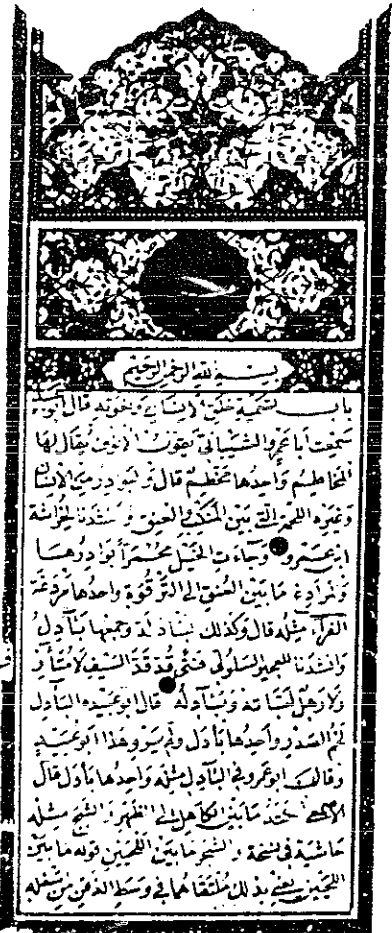 بسم الله الرحمن الرحيم
باب تسمية خلق الانسان ونعوته قال ابو عبيد
سمعت ابا عمرو الشيبانى يقول الانوف يقال لها
المخاطم واحدها مخطم قال والبوادر من الانسان
وغيره اللحمة التى بين المنكب والعنق وانشدنا لخراشة
ابن عمرو وجاءت الخيل محمرا بوادرها
والمرادغ ما بين العنق الى الترقوة واحدها مردغة
الفراء مثله قال وكذلك البادلة وجمعها بآدل
وانشدنا للعجير السلولى فتى قد قد السيف لا متآزف
ولا رهل لباته وبآدله قال ابو عبيدة البآدل
لحم الصدر واحدها بادل
وقال ابو عمرو فى البآدل مثله واحدها بادل قال
ما بين الكاهل الى الظهر والثبج مثله
حاشية فى نسخة ما بين اللحيين قوله ما بين
اللحيين يعنى بذلك ملتقاهما فى وسط الذقن من